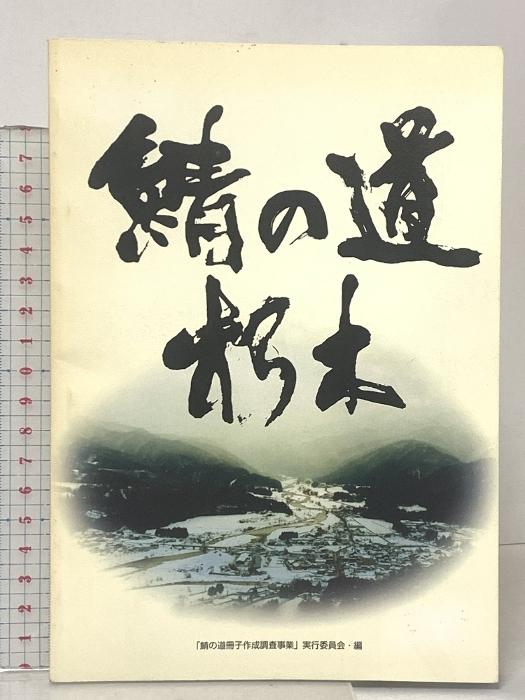 鯖の道
朽木
「鯖の道冊子作成調査事業」実行委員会・編